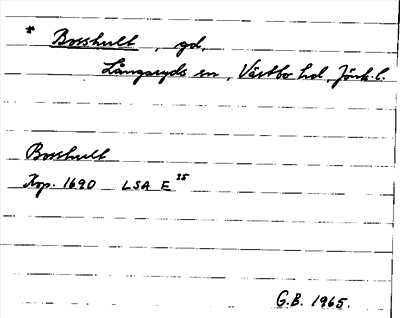 * Bosshult, gd,
Långaryds sn, Västbo hd, Jönk.l.
Bosshult
Kop. 1690 LSA E 35
G.B. 1965.